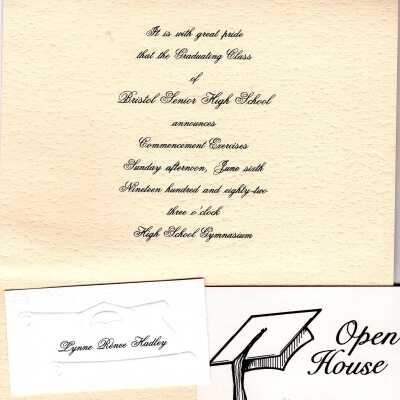 It is with great pride
that the Graduating Class
of
Bristol Senior High School
announces
Commencement Exercises
Sunday afternoon, June sixth
Nineteen hundred and eighty-two
three o'clock
High School Gymnasium
Lynne Renee Hadley
Open
House